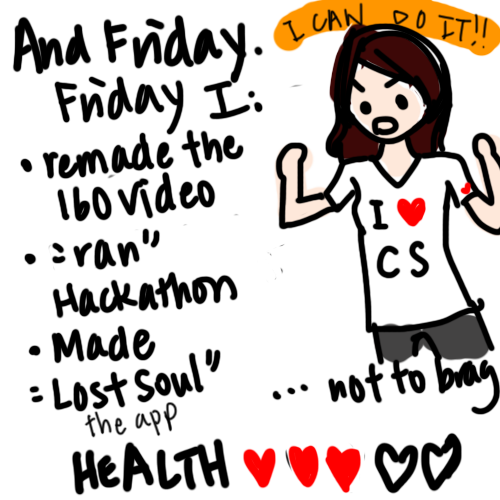 I CAN DO IT!!
And Friday.
Friday I:
• remade the
160 video
• "ran"
Hackathon
• Made
"Lost Soul"
the app
I ♥
CS
... not to brag
HEALTH ♥♥♥♡♡